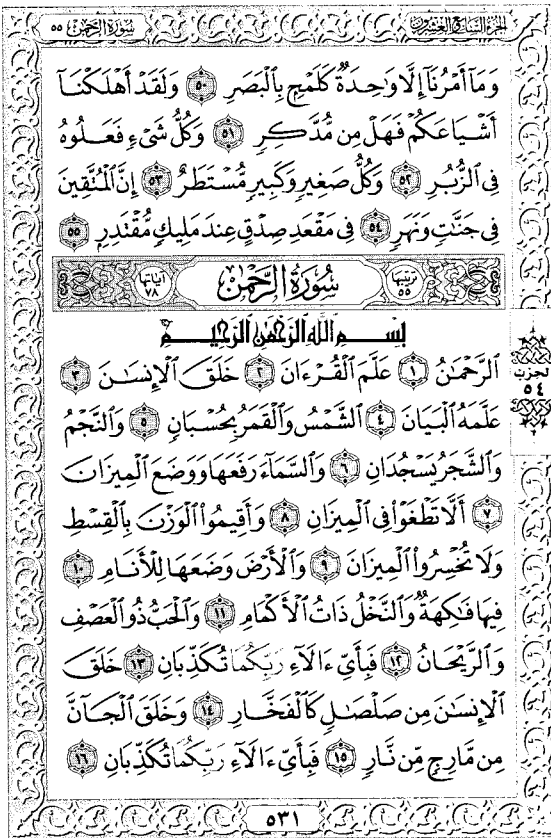 الجزء السابع والعشرون
سورة الرحمن ٥٥
وَمَآ أَمْرُنَآ إِلَّا وَٰحِدَةٌ كَلَمْحٍۭ بِٱلْبَصَرِ ٥٠ وَلَقَدْ أَهْلَكْنَآ
أَشْيَاعَكُمْ فَهَلْ مِن مُّدَّكِرٍ ٥١ وَكُلُّ شَىْءٍ فَعَلُوهُ
فِى ٱلزُّبُرِ ٥٢ وَكُلُّ صَغِيرٍ وَكَبِيرٍ مُّسْتَطَرٌ ٥٣ إِنَّ ٱلْمُتَّقِينَ
فِى جَنَّٰتٍ وَنَهَرٍ ٥٤ فِى مَقْعَدِ صِدْقٍ عِندَ مَلِيكٍ مُّقْتَدِرٍۭ ٥٥
ترتيبها ٥٥ سُورَةُ الرَّحْمٰن آياتها ٧٨
بِسْمِ ٱللَّهِ ٱلرَّحْمَٰنِ ٱلرَّحِيمِ
ٱلرَّحْمَٰنُ ١ عَلَّمَ ٱلْقُرْءَانَ ٢ خَلَقَ ٱلْإِنسَٰنَ ٣
عَلَّمَهُ ٱلْبَيَانَ ٤ ٱلشَّمْسُ وَٱلْقَمَرُ بِحُسْبَانٍ ٥ وَٱلنَّجْمُ
وَٱلشَّجَرُ يَسْجُدَانِ ٦ وَٱلسَّمَآءَ رَفَعَهَا وَوَضَعَ ٱلْمِيزَانَ
٧ أَلَّا تَطْغَوْا۟ فِى ٱلْمِيزَانِ ٨ وَأَقِيمُوا۟ ٱلْوَزْنَ بِٱلْقِسْطِ
وَلَا تُخْسِرُوا۟ ٱلْمِيزَانَ ٩ وَٱلْأَرْضَ وَضَعَهَا لِلْأَنَامِ ١٠
فِيهَا فَٰكِهَةٌ وَٱلنَّخْلُ ذَاتُ ٱلْأَكْمَامِ ١١ وَٱلْحَبُّ ذُو ٱلْعَصْفِ
وَٱلرَّيْحَانُ ١٢ فَبِأَىِّ ءَالَآءِ رَبِّكُمَا تُكَذِّبَانِ ١٣ خَلَقَ
ٱلْإِنسَٰنَ مِن صَلْصَٰلٍ كَٱلْفَخَّارِ ١٤ وَخَلَقَ ٱلْجَآنَّ
مِن مَّارِجٍ مِّن نَّارٍ ١٥ فَبِأَىِّ ءَالَآءِ رَبِّكُمَا تُكَذِّبَانِ ١٦
الحزب
٥٤
٥٣١